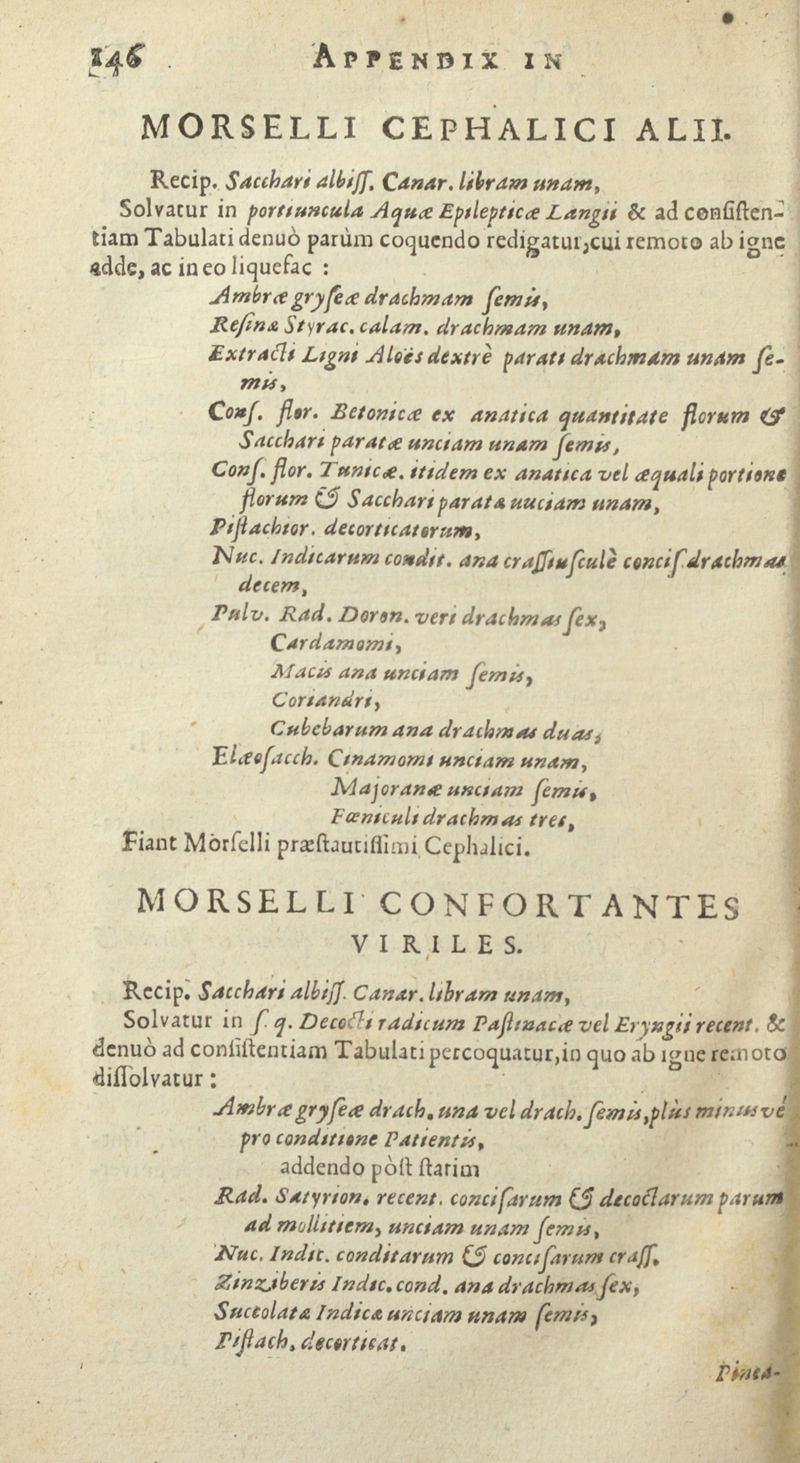 146 APPENDIX IN
MORSELLI CEPHALICI ALII.
Recip. Sacchari albiſſ. Canar. libram unam,
Solvatur in portiuncula Aquæ Epilepticæ Langii & ad conſiſten-
tiam Tabulati denuò parùm coquendo redigatur, cui remoto ab igne
adde, ac in eo liquefac :
Ambræ gryſeæ drachmam ſemis,
Reſinæ Styrac. calam. drachmam unam,
Extracti Ligni Aloës dextrè parati drachmam unam ſe-
mis,
Conſ. flor. Betonicæ ex anatica quantitate florum &
Sacchari paratæ unciam unam ſemis,
Conſ. flor. Tunicæ. itidem ex anatica vel æquali portione
florum & Sacchari paratæ uuciam unam,
Piſtachior. decorticatorum,
Nuc. Indicarum condit. ana craſſiuſculè conciſ. drachmas
decem,
Pulv. Rad. Doron. veri drachmas ſex,
Cardamomi,
Macis ana unciam ſemis,
Coriandri,
Cubebarum ana drachmas duas,
Elæoſacch. Cinamomi unciam unam,
Majoranæ unciam ſemis,
Fœniculi drachmas tres,
Fiant Morſelli præſtautiſſimi Cephalici.
MORSELLI CONFORTANTES
VIRILES.
Recip. Sacchari albiſſ. Canar. libram unam,
Solvatur in ſ. q. Decocti radicum Paſtinacæ vel Eryngii recent. &
denuò ad conſiſtentiam Tabulati percoquatur, in quo ab igne remoto
diſſolvatur :
Ambræ gryſeæ drach. una vel drach. ſemis, plùs minusvé
pro conditione Patientis,
addendo pòſt ſtatim
Rad. Satyrion. recent. conciſarum & decoctarum parum
ad mollitiem, unciam unam ſemis,
Nuc. Indic. conditarum & conciſarum craſſ.
Zinziberis Indic. cond. ana drachmas ſex,
Succolatæ Indicæ unciam unam ſemis,
Piſtach. decorticat.
Pinea-